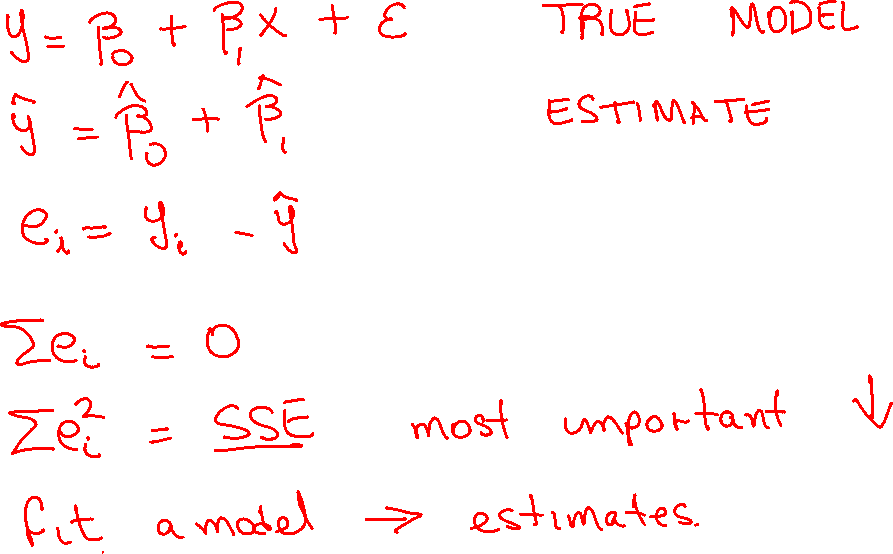 y = β₀ + β₁x + ε TRUE MODEL
ŷ = β̂₀ + β̂₁ ESTIMATE
eᵢ = yᵢ - ŷ
Σeᵢ = 0
Σeᵢ² = SSE most important ↓
fit a model → estimates.